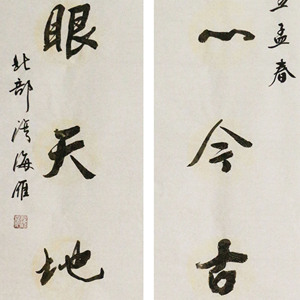 孟春
心今古
眼天地
北部湾海雁